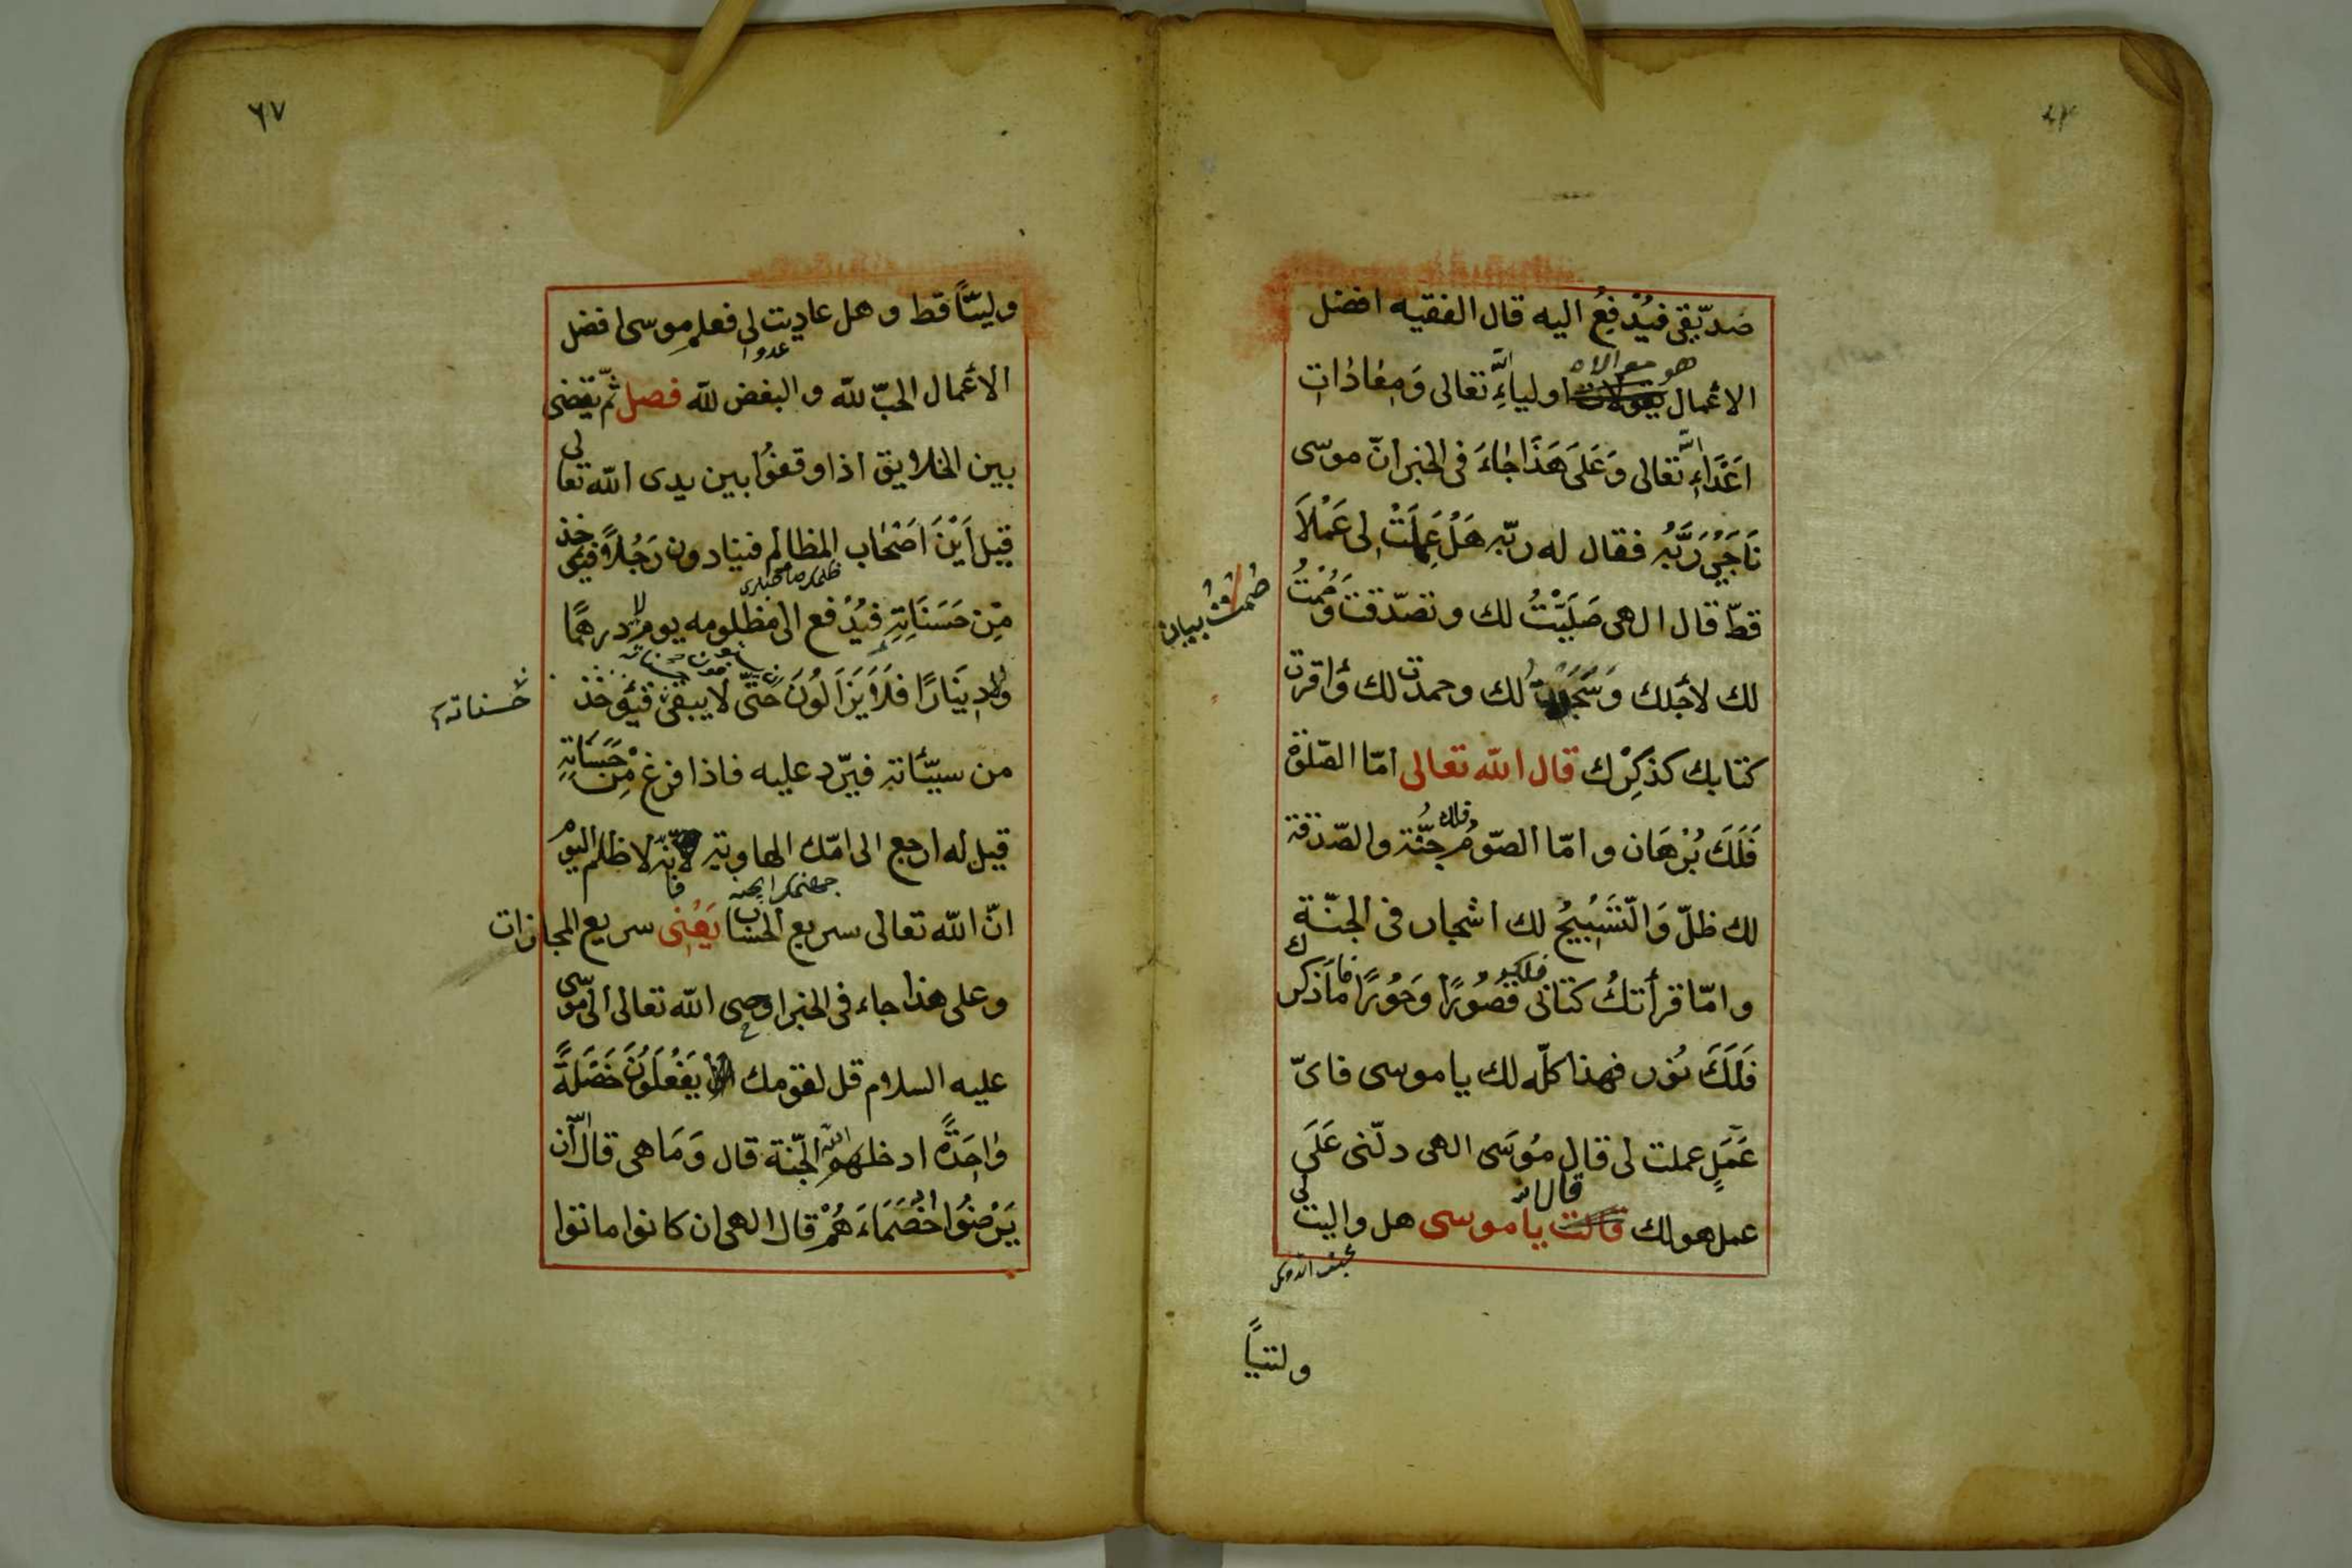 صدّيقى فيُدْفعُ اليه قال الفقيه افضل
الاعْمال هو موالاة اولياءِ الله تعالى وَمعَادَات
اعَدَاءِ الله تعالى وَعَلَى هَذَا جَاءَ فى الخبر انّ موسى
نَاجَىْ رَبَّهُ فقال له ربّه هَلْ عَمِلَتْ لى عَمْلاً
قطّ قال الهى صَلَيَّتُ لك وتصدّقت وَصُمْتُ
لك لأجَلك وَسَجَدْت لك وحمدت لك وَاقرت
كتابك كذكِرْك قال الله تعالى امّا الصّلوة
فَلَكَ بُرْهَان وامّا الصّومُ فلك جُنَّة والصّدقة
لك ظلّ وَالتّسَبْيحُ لك اشجار فى الجنّة
وامّا قرأتكُ كتابى فلك قصُورًا وَحُورًا امّا ذكرك
فَلَكَ نُور فهذا كلّه لك يا موسى فاىّ
عَمَلٍ عملت لى قال مُوسَى الهى دلّنى عَلَى
عمل هو لك قال الله يا موسى هل واليت لى
وليّاً
٦٧
وليّاً قط وهل عاديت لى عدوا فعلم موسى افضل
الاعْمال الحبّ للّه والبغض للّه فصل ثمّ يقضى
بين الخلايق اذا وقفوُا بين يدى اللّه تعالى
قيل اَيْنَ اَصْحَاب المظالم فينادون رَجُلاً فيؤخذ
مِّن حَسَنَاتِهِ فيُدْفع الى مظلومه يوم لا درهمًا
ولا دِينَارًا فلاَ يَزَالُونَ حَتّى لا يبقى فيُؤخذ
حسناته
من سيّئاته فيرّد عليه فاذا فرغ مِنْ حَسَنَاتِهِ
قيل له ارجع الى امّك الهاوية فانّه لا ظلم اليوم
انّ اللّه تعالى سريع الحساب يَعْنى سريع المجازات
وعلى هذا جاء فى الخبر اوحى اللّه تعالى الى موسى
عليه السلام قل لقومك يَفْعَلُونَ خَصْلَةً
وَاحِدَةً ادخلهم الله الجّنة قال وَمَا هى قال ان
يَرْضَوُا خُصَمَاءَهُمْ قال الهى ان كانوا ماتوا